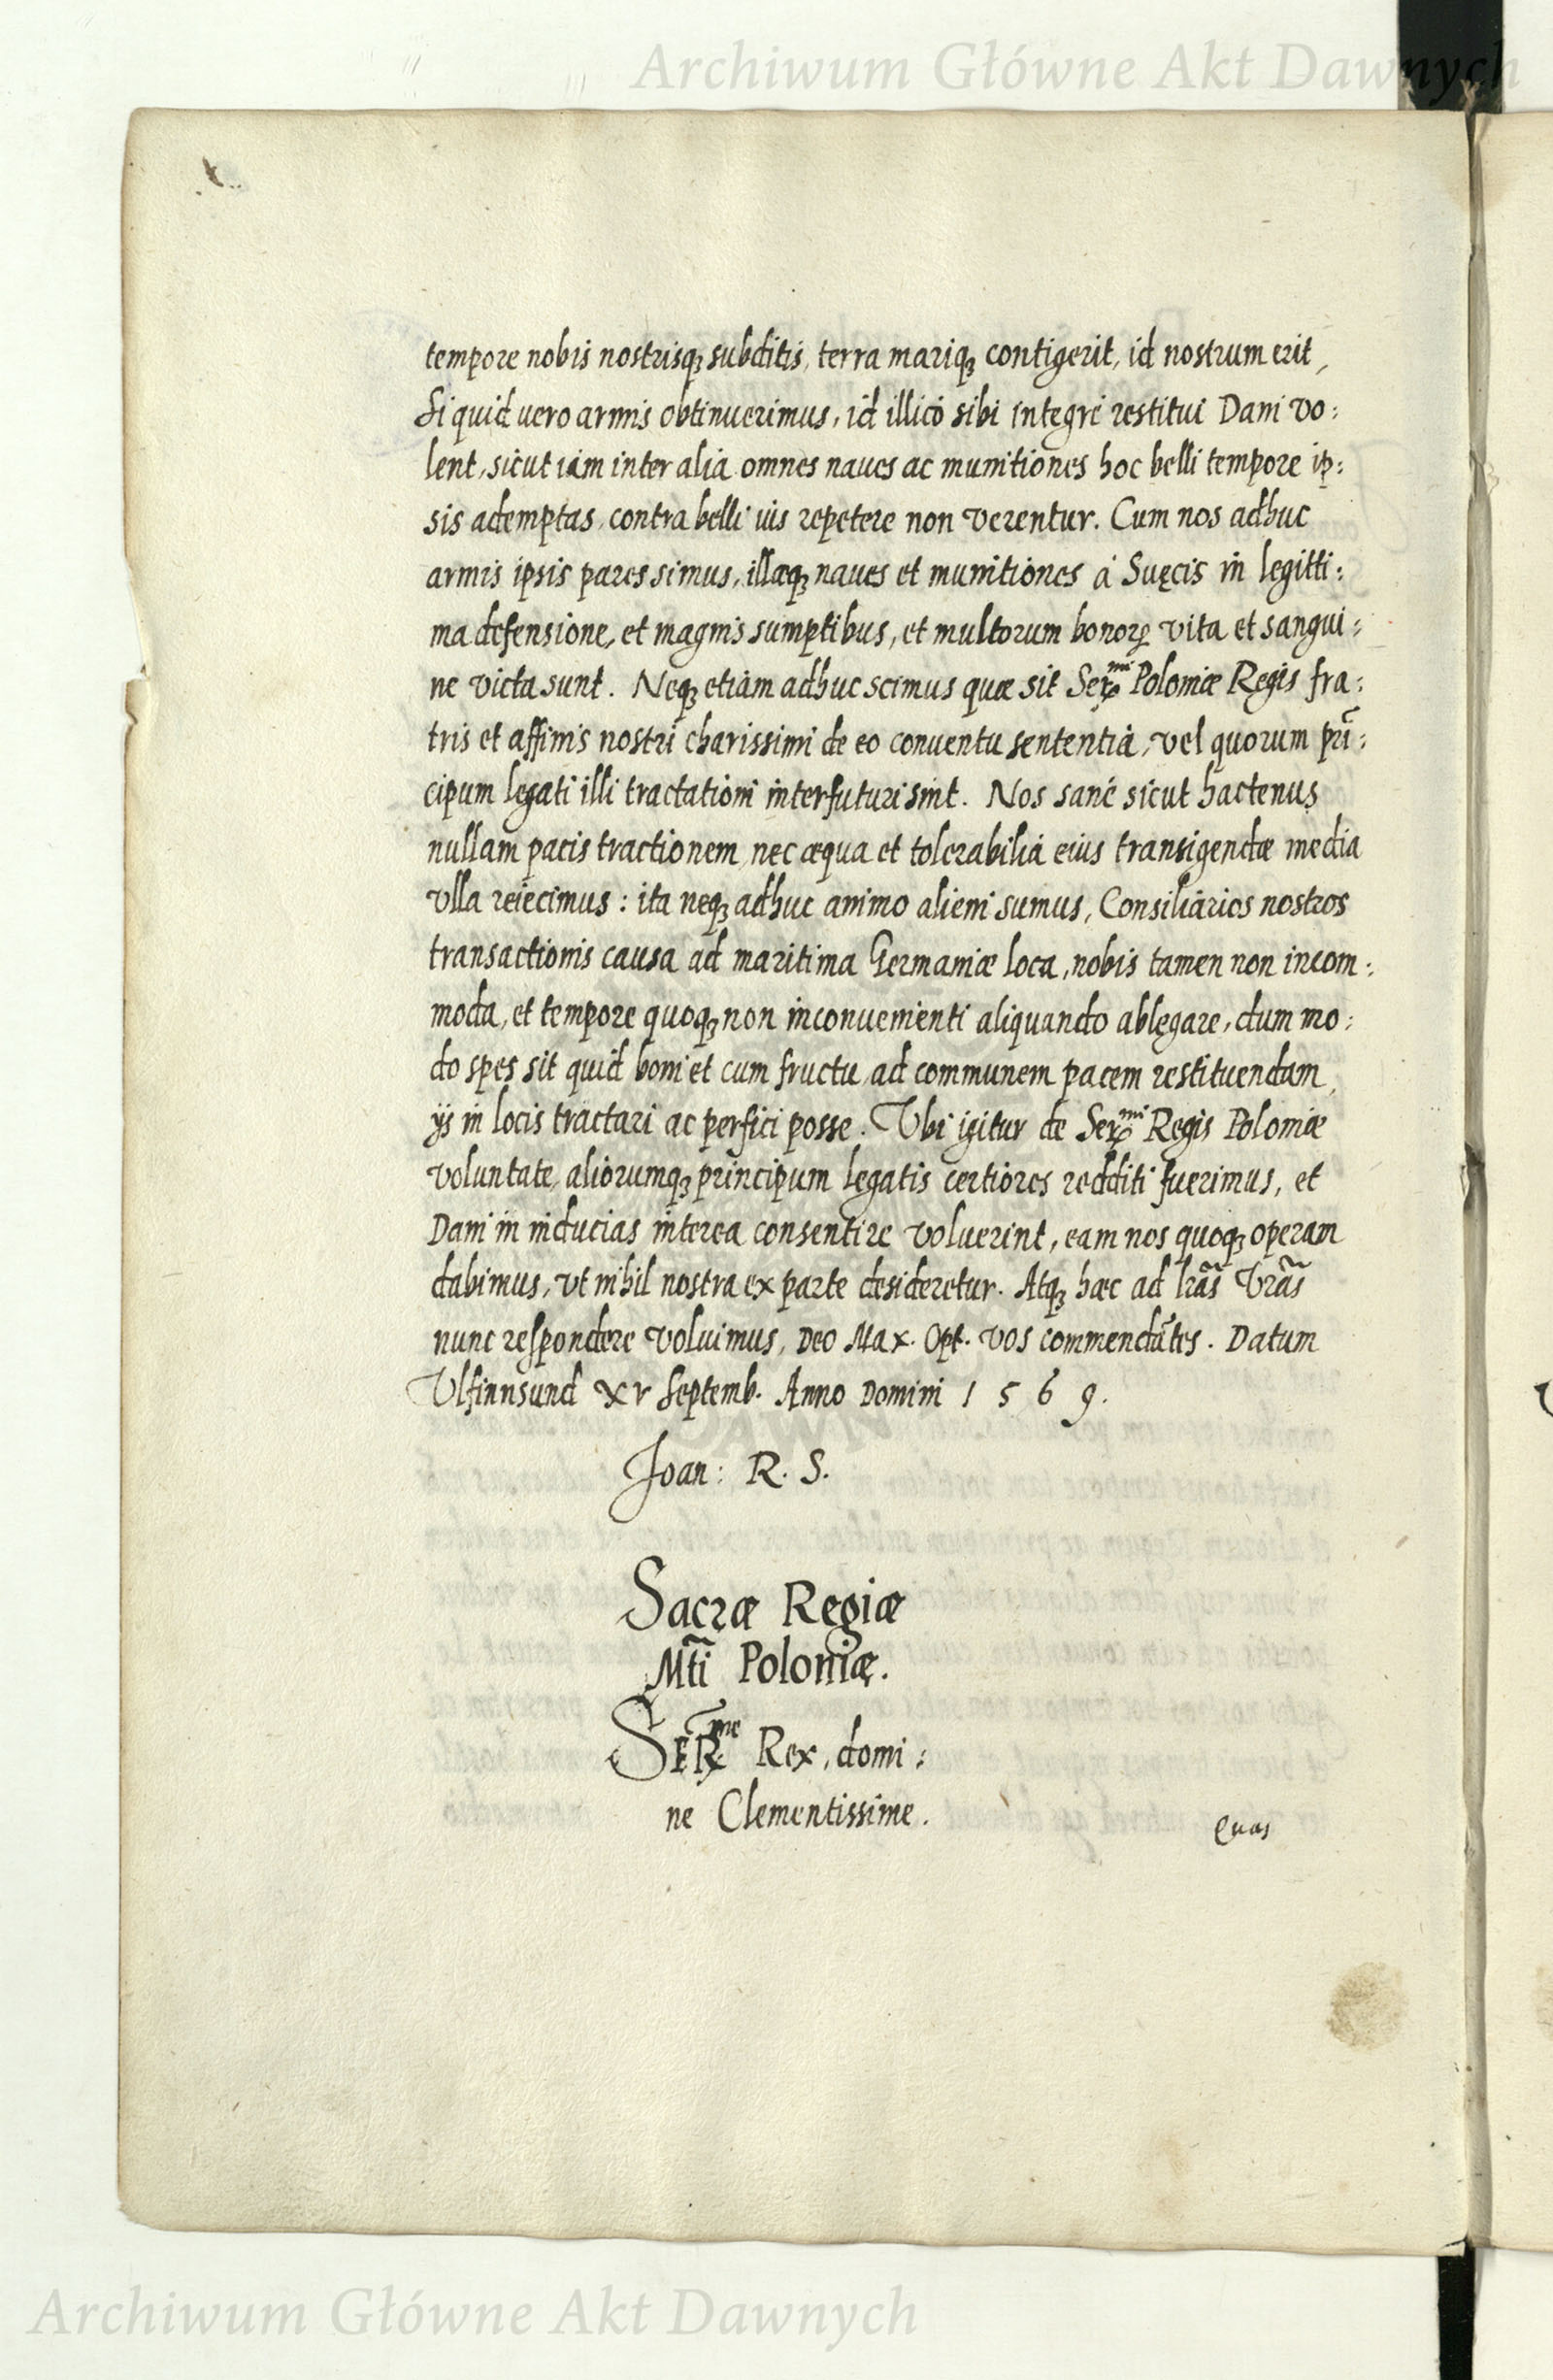 Archiwum Główne Akt Dawnych
tempore nobis nostrisq; subditis, terra mariq; contigerit, id nostrum erit,
Si quid vero armis obtinuerimus, id illicò sibi integrè restitui Dani vo:
lent, sicut iam inter alia omnes naues ac munitiones hoc belli tempore ip:
sis ademptas, contra belli ius repetere non verentur. Cum nos adhuc
armis ipsis pares simus, illæq; naues et munitiones à Suęcis in legitti:
ma defensione, et magnis sumptibus, et multorum bonorꝝ vita et sangui:
ne victa sunt. Neq; etiam adhuc scimus quæ sit Serᵐⁱ Poloniæ Regis fra:
tris et affinis nostri charissimi de eo conuentu sententia, vel quorum prī:
cipum legati illi tractationi interfuturi sint. Nos sanè sicut hactenus
nullam pacis tractionem, nec æqua et tolerabilia eius transigendæ media
vlla reiecimus: ita neq; adhuc animo alieni sumus, Consiliarios nostros
transactionis causa ad maritima Germaniæ loca, nobis tamen non incom:
moda, et tempore quoq; non inconuenienti aliquando ablegare, dum mo:
do spes sit quid boni et cum fructu ad communem pacem restituendam,
ijs in locis tractari ac perfici posse. Vbi igitur de Serᵐⁱ Regis Poloniæ
voluntate, aliorumq; principum legatis certiores redditi fuerimus, et
Dani in inducias interea consentire voluerint, eam nos quoq; operam
dabimus, vt nihil nostra ex parte desideretur. Atq; hæc ad lrãs Vrãs
nunc respondere voluimus, Deo Max. Opt. vos commendātes. Datum
Vlfinnsund XV Septemb. Anno Domini 1569.
Joan: R. S.
Sacræ Regiæ
Mtĩ Poloniæ.
SERᵐᵉ Rex, domi:
ne Clementissime.
Quas
Archiwum Główne Akt Dawnych